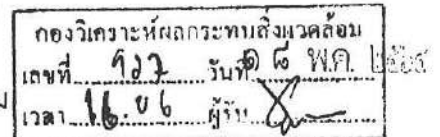 กองวิเคราะห์ผลกระทบสิ่งแวดล้อม
เลขที่ ๆ๖๗ วันที่ ๑ ๘ พ.ค.
เวลา 16.06 ผู้รับ